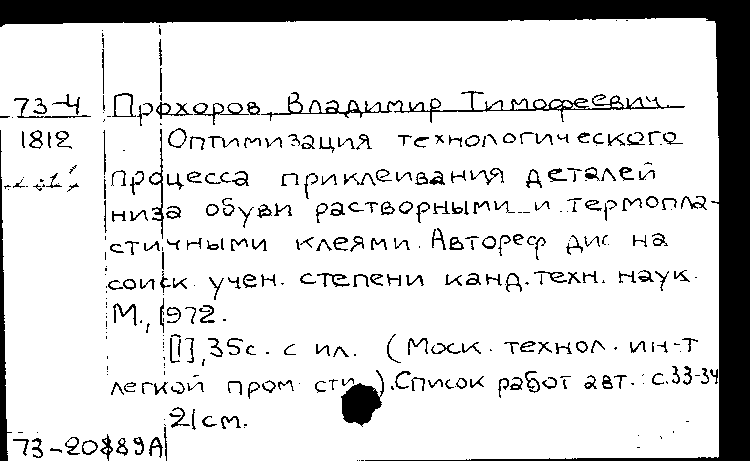 73-4 Прохоров, Владимир Тимофеевич.
1812 Оптимизация технологического
процесса приклеивания деталей
низа обуви растворными и термопла-
стичными клеями. Автореф дис на
соиск. учен. степени канд. техн. наук.
М., 1972.
[1], 35с. с ил. (Моск. технол. ин-т
легкой пром сти ). Список работ авт.: с.33-34
21см.
73-20889А